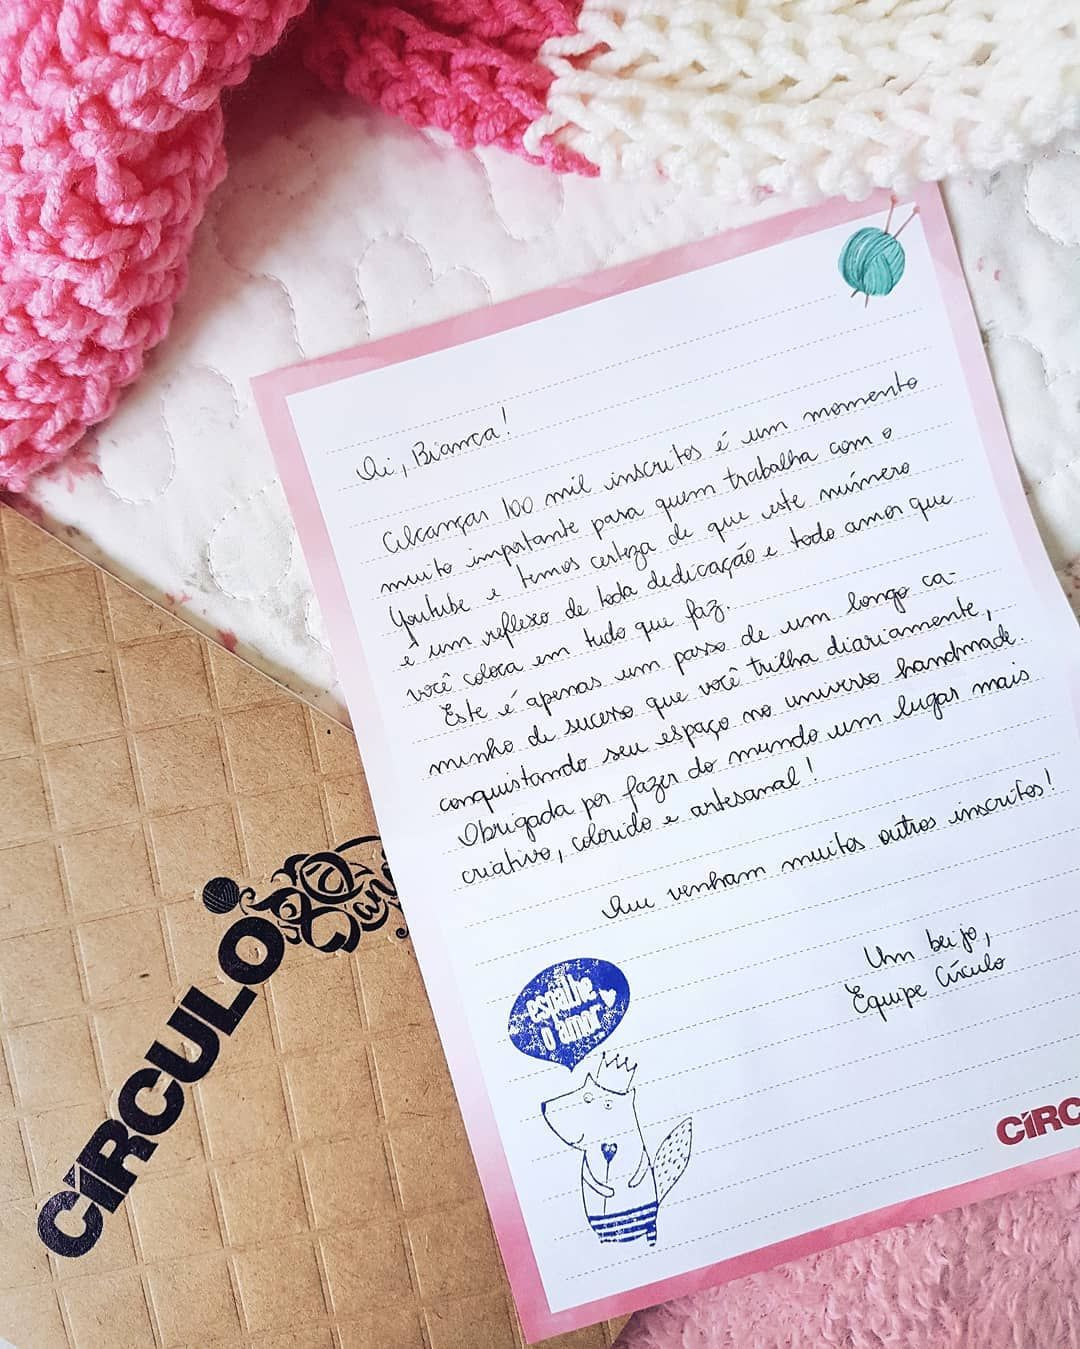 Oi, Bianca!
Alcançar 100 mil inscritos é um momento
muito importante para quem trabalha com o
Youtube e temos certeza de que este número
é um reflexo de toda dedicação e todo amor que
você coloca em tudo que faz.
Este é apenas um passo de um longo ca-
minho de sucesso que você trilha diariamente,
conquistando seu espaço no universo handmade.
Obrigada por fazer do mundo um lugar mais
criativo, colorido e artesanal!
Que venham muitos outros inscritos!
Um beijo,
Equipe Círculo
espalhe
o amor
CÍRC
CÍRCULO